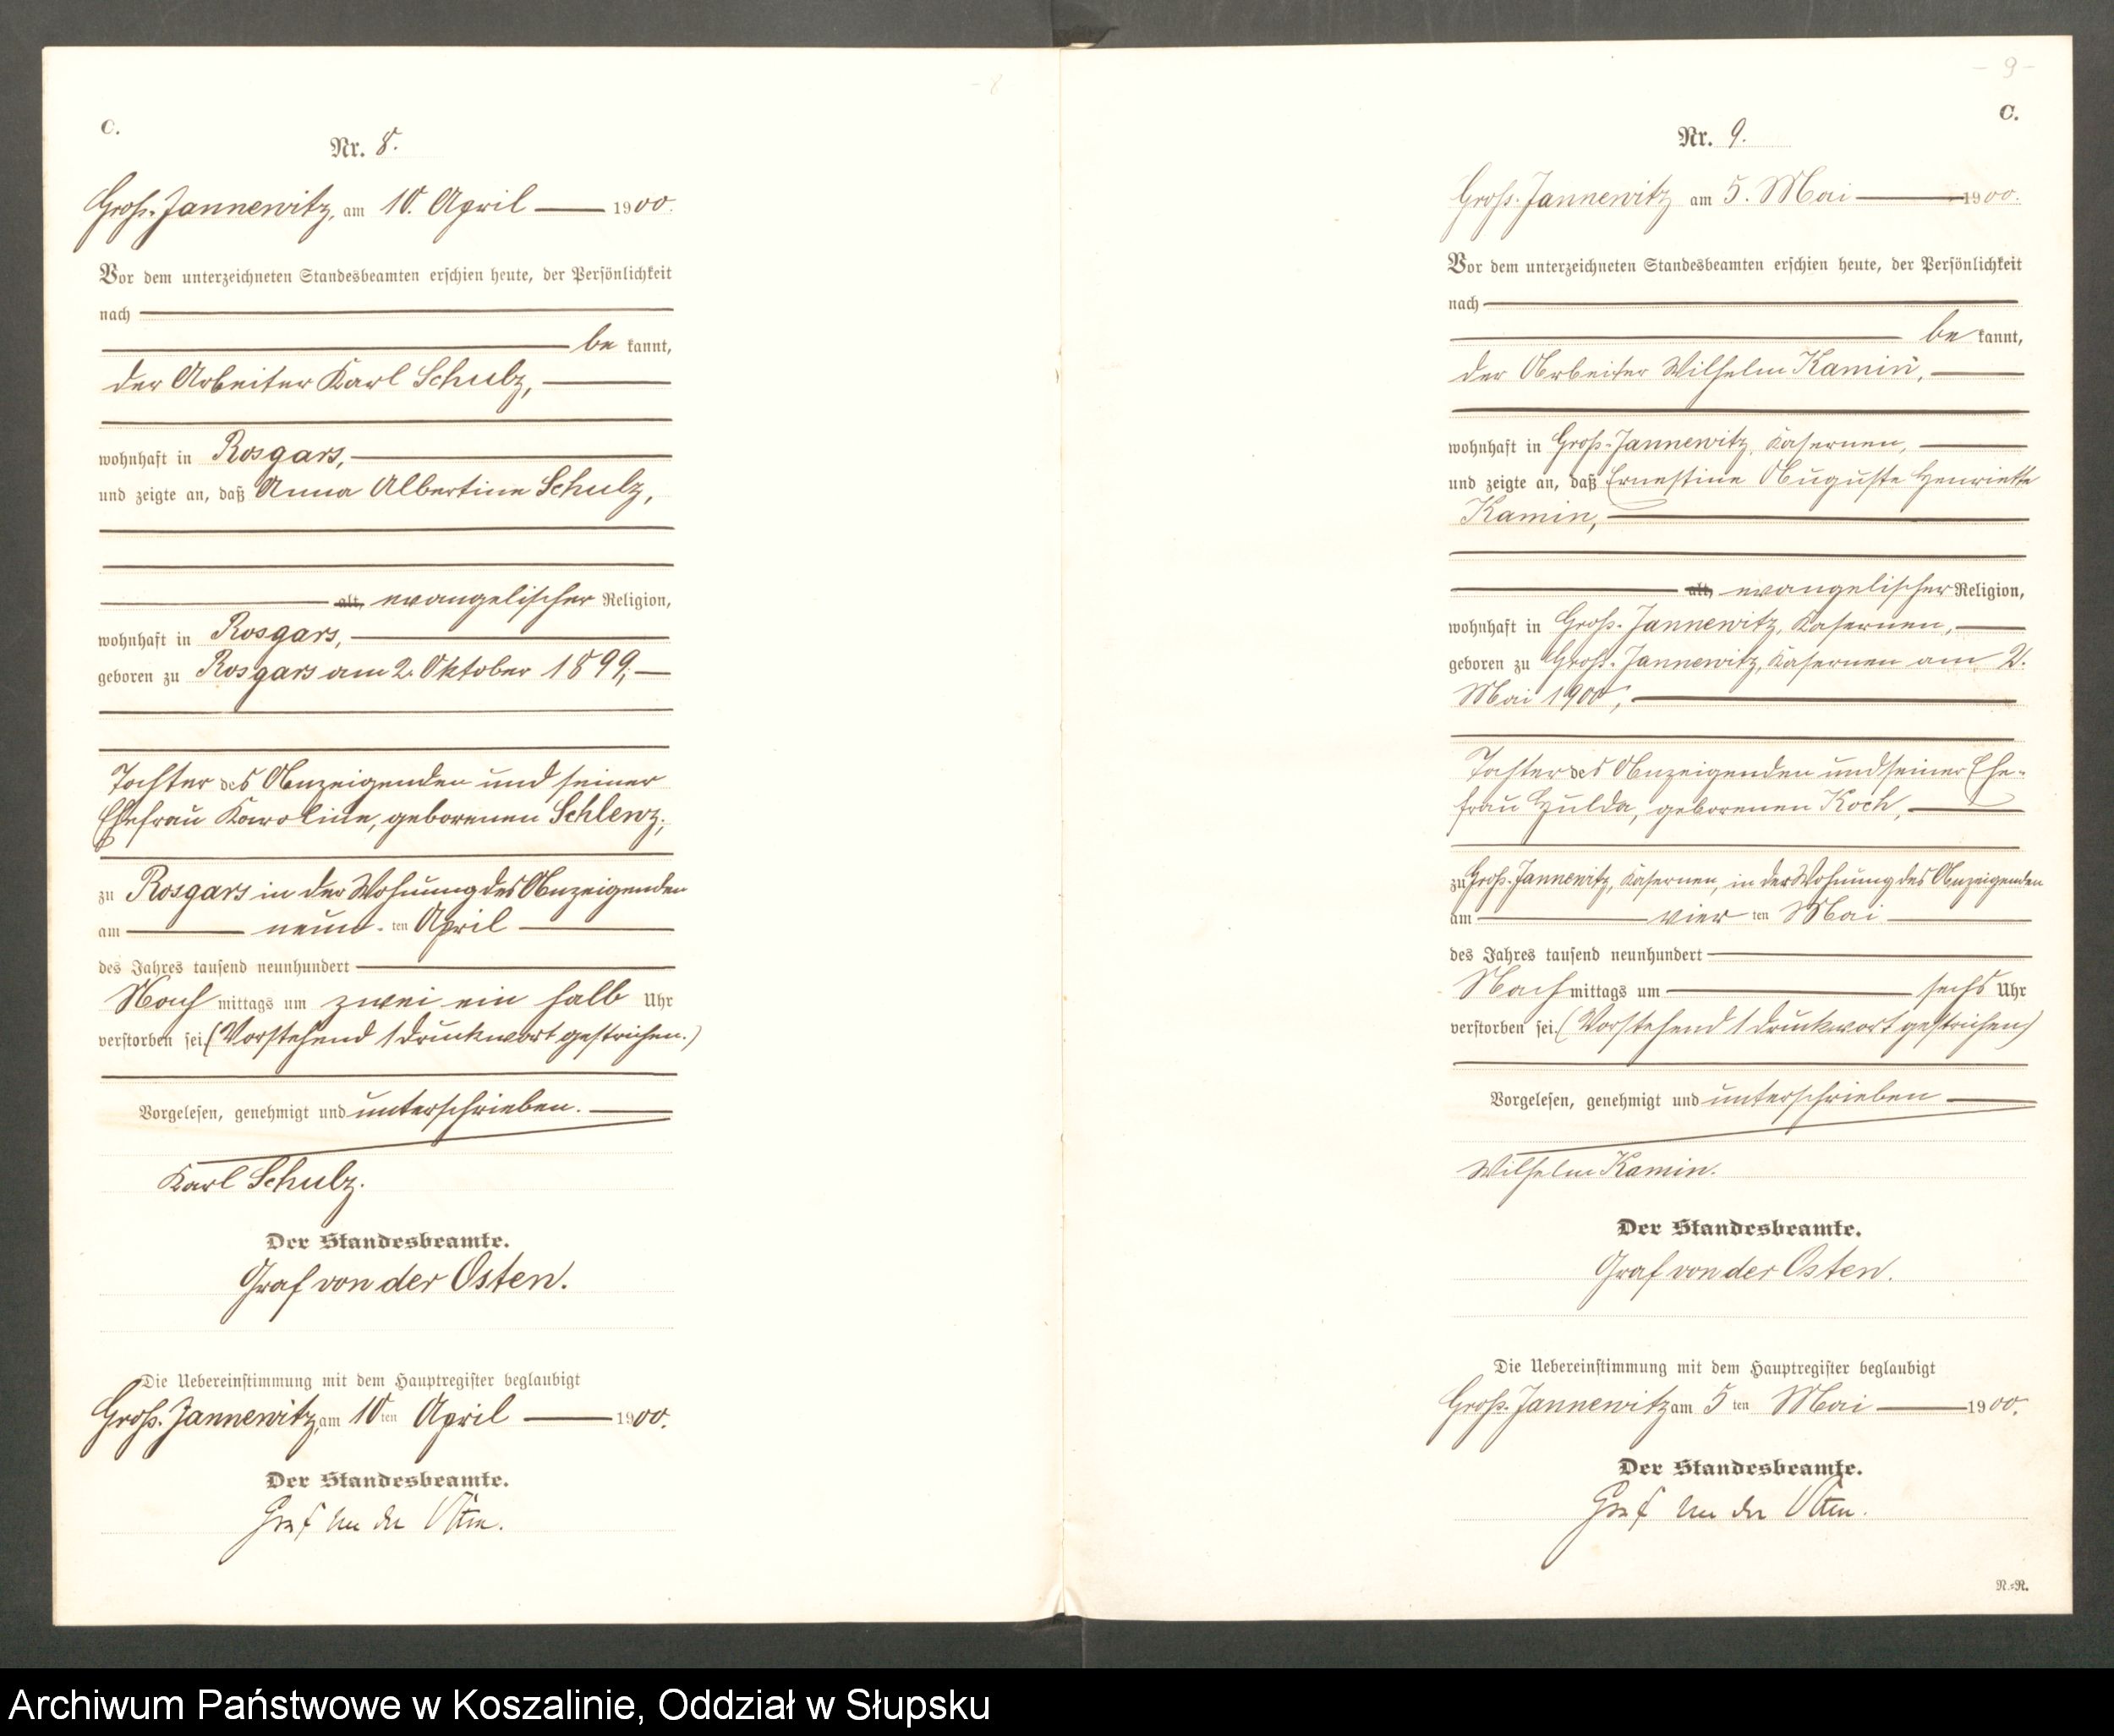 - 8
C.
Nr. 8.
Groß-Jannewitz, am 10. April 1900.
Vor dem unterzeichneten Standesbeamten erschien heute, der Persönlichkeit
nach
be kannt,
der Arbeiter Karl Schulz,
wohnhaft in Rosgars,
und zeigte an, daß Anna Albertine Schulz,
alt, evangelischer Religion,
wohnhaft in Rosgars,
geboren zu Rosgars am 2. Oktober 1899,
Tochter des Anzeigenden und seiner
Ehefrau Karoline, geborenen Schlenz,
zu Rosgars in der Wohnung des Anzeigenden
am neun-ten April
des Jahres tausend neunhundert
Nach mittags um zwei ein halb Uhr
verstorben sei. (Vorstehend 1 Druckwort gestrichen.)
Vorgelesen, genehmigt und unterschrieben.
Karl Schulz.
Der Standesbeamte.
Graf von der Osten.
Die Uebereinstimmung mit dem Hauptregister beglaubigt
Groß-Jannewitz, am 10ten April 1900.
Der Standesbeamte.
Graf von der Osten.
- 9 -
C.
Nr. 9.
Groß-Jannewitz am 5. Mai 1900.
Vor dem unterzeichneten Standesbeamten erschien heute, der Persönlichkeit
nach
be kannt,
der Arbeiter Wilhelm Kamin,
wohnhaft in Groß-Jannewitz, Kasernen,
und zeigte an, daß Ernestine Auguste Henriette
Kamin,
alt, evangelischer Religion,
wohnhaft in Groß-Jannewitz, Kasernen,
geboren zu Groß-Jannewitz, Kasernen am 2.
Mai 1900,
Tochter des Anzeigenden und seiner Ehe-
frau Hulda, geborenen Koch,
zu Groß-Jannewitz, Kasernen, in der Wohnung des Anzeigenden
am vier ten Mai
des Jahres tausend neunhundert
Nach mittags um sechs Uhr
verstorben sei. (Vorstehend 1 Druckwort gestrichen)
Vorgelesen, genehmigt und unterschrieben
Wilhelm Kamin.
Der Standesbeamte.
Graf von der Osten.
Die Uebereinstimmung mit dem Hauptregister beglaubigt
Groß-Jannewitz am 5ten Mai 1900.
Der Standesbeamte.
Graf von der Osten.
R.=R.
Archiwum Państwowe w Koszalinie, Oddział w Słupsku